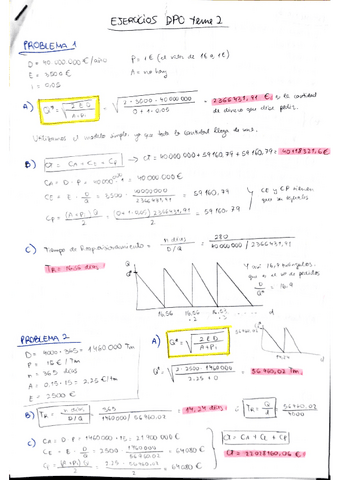 EJERCICIOS DPO Tema 2
PROBLEMA 1
D = 40 000 000 €/año
P = 1 € (el valor de 1€ a 1€)
E = 3500 €
A = no hay
i = 0.05
A) Q* = √ 2 E D / A + P i = √ 2 · 3500 · 40000000 / 0 + 1 · 0.05 = 2366431,91 € es la cantidad
de dinero que debe pedir.
Utilizamos el modelo simple ya que toda la cantidad llega de una.
B) CT = CA + CE + CP → CT = 40 000 000 + 59160.79 + 59160.79 = 40118321,6 €
CA = D · P = 40000000 · 1 = 40 000 000 €
CE = E · D/Q = 3500 · 40000000 / 2366431,91 = 59160.79
CE y CP tienen
que ser iguales
CP = (A + Pi) Q / 2 = (0 + 1 · 0.05) 2366431,91 / 2 = 59160.79
C) Tiempo de Reaprovisionamiento = n días / D/Q = 280 / 40000000 / 2366431,91
TR = 16.56 días
Y así 16.9 triángulos,
que es el nº de pedidos
D / Q* = 16.9
Q
16.56 16.56 · 2 16.56 · 3
d
PROBLEMA 2
D = 4000 · 365 = 1460000 Tm
P = 15 € / Tm
n = 365 días
A = 0.15 · 15 = 2.25 €/Tm
E = 2500 €
A) Q* = √ 2 E D / A + Pi
Q* = √ 2 · 2500 · 1460000 / 2.25 + 0 = 56960.02 Tm
B) TR = n días / D/Q = 365 / 1460000 / 56960.02 = 14,24 días ó TR = Q / d = 56960.02 / 4000
C) CA = D · P = 1460000 · 15 = 21900000 €
CE = E · D/Q = 2500 · 1460000 / 56960.02 = 64080 €
CP = (A + Pi) Q / 2 = 2.25 · 56960.02 / 2 = 64080 €
CT = CA + CE + CP
CT = 22028160.06 €